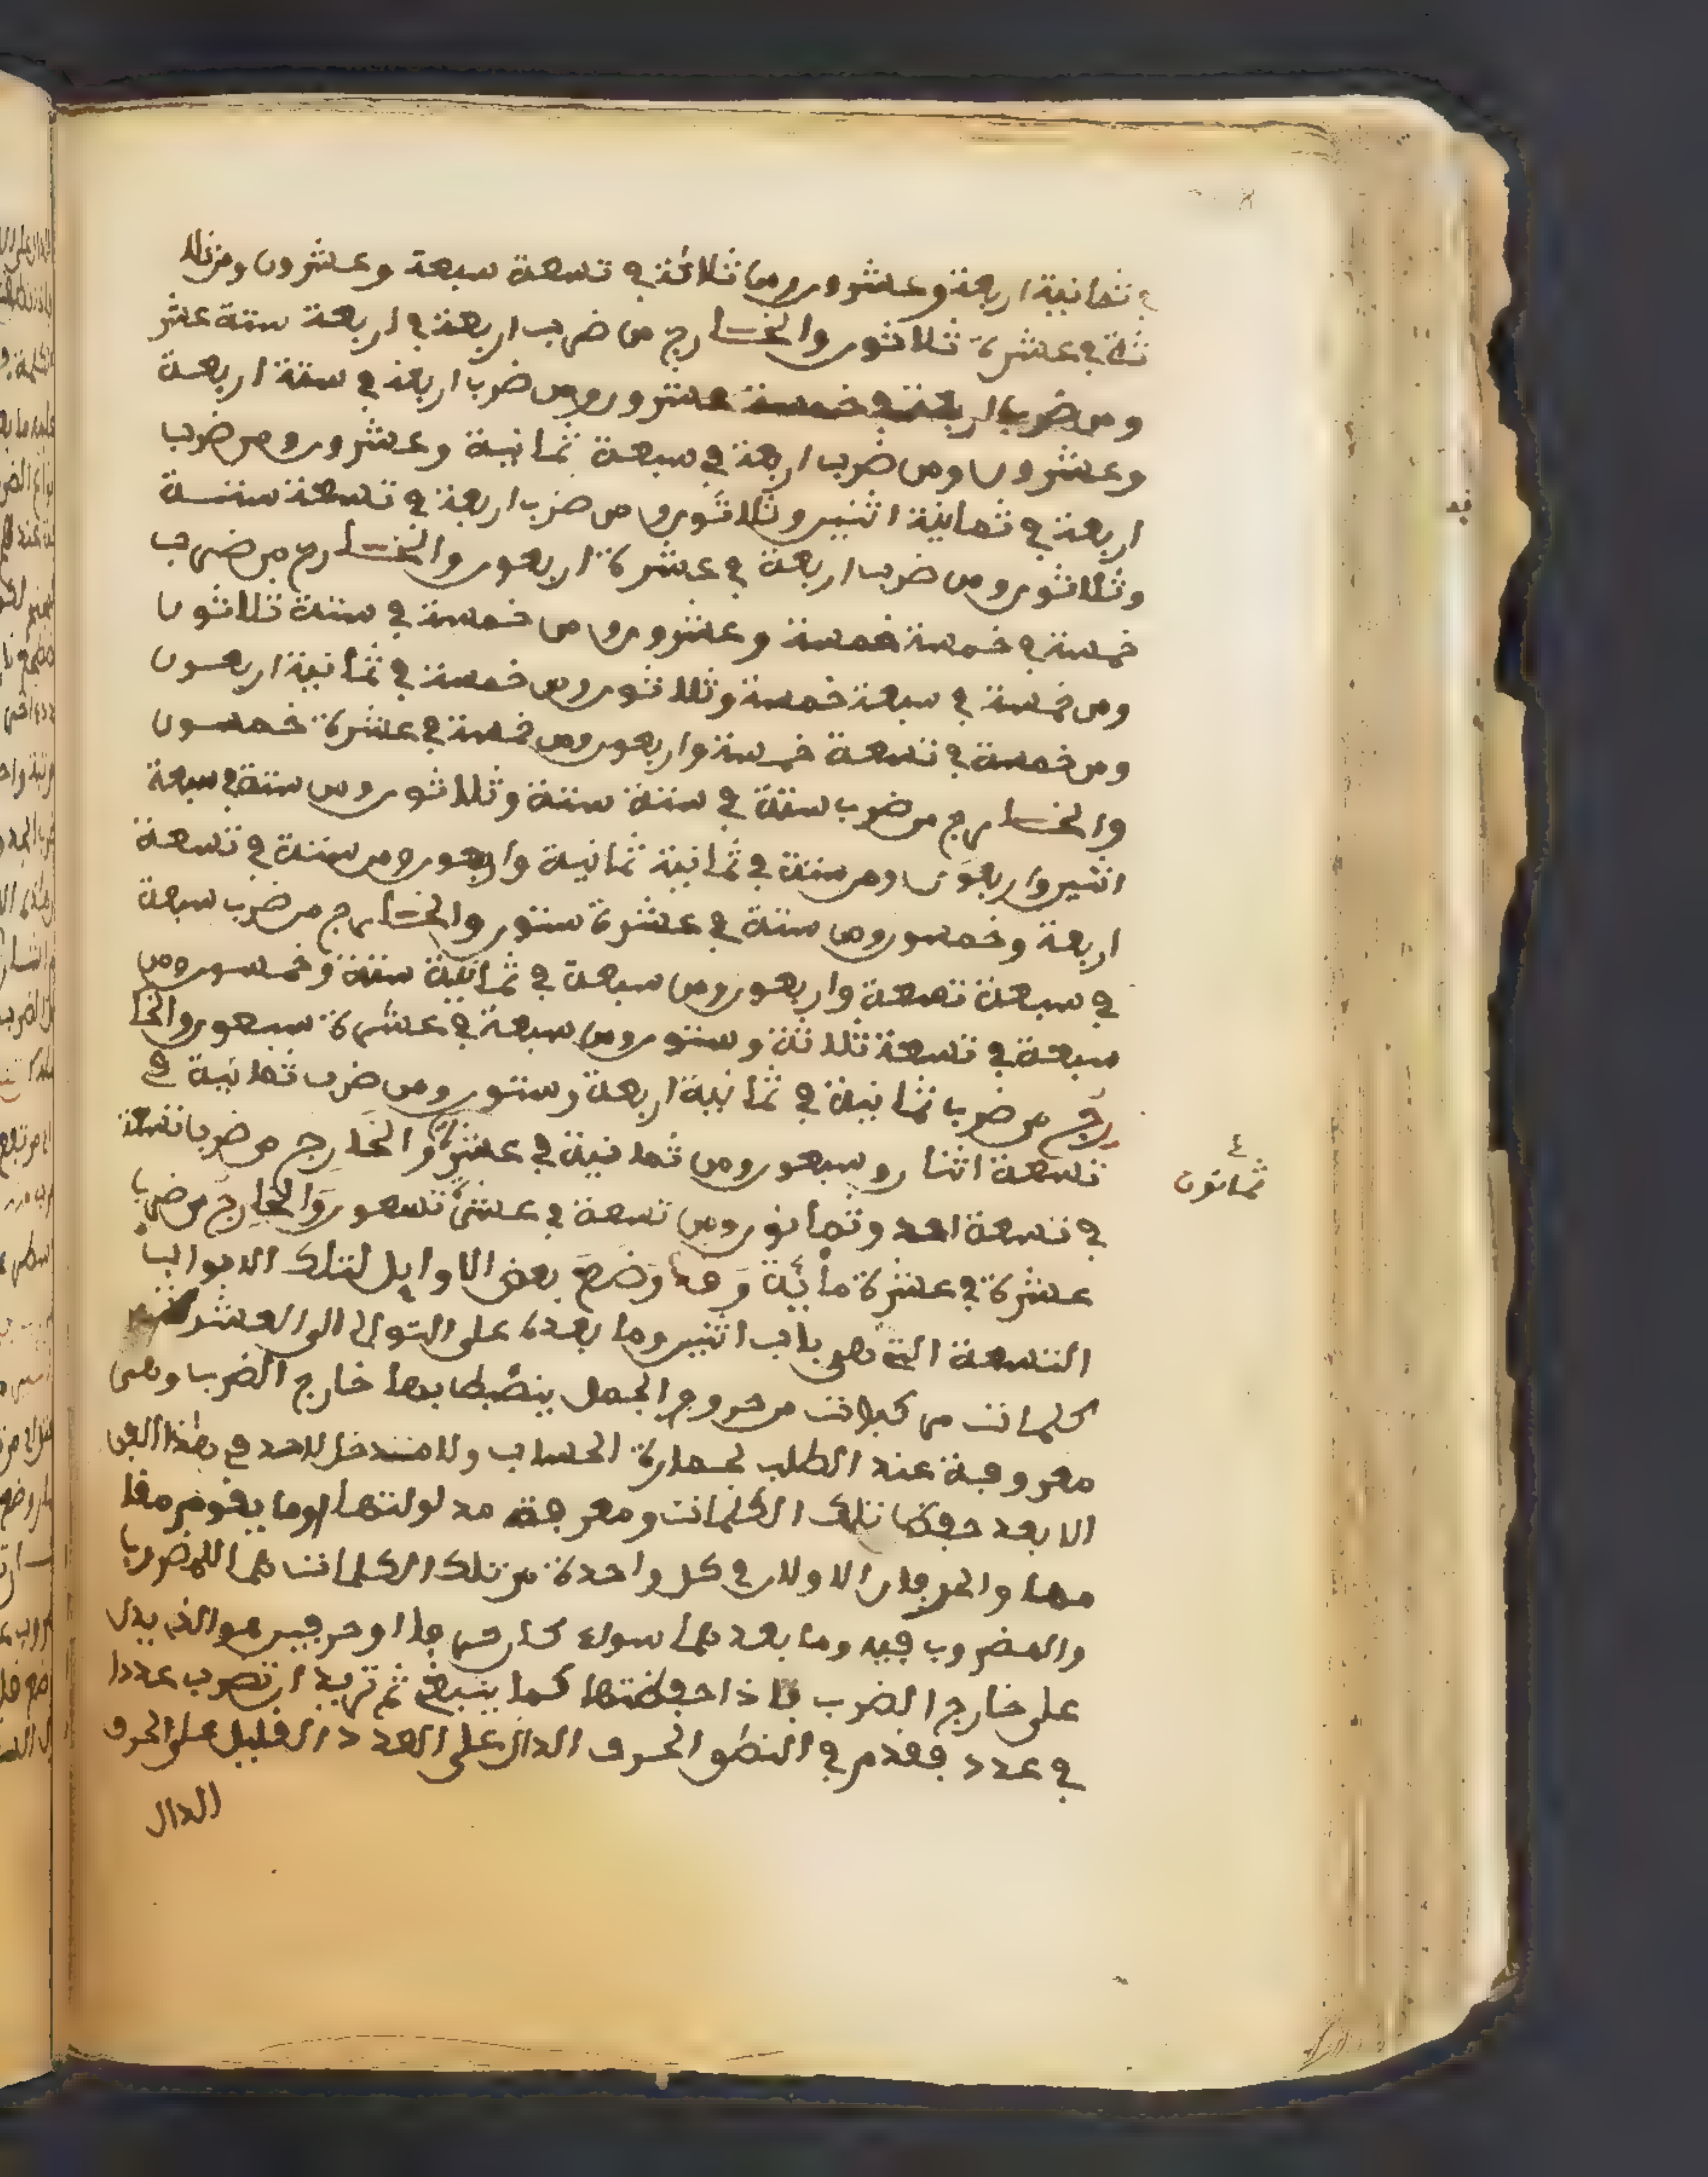 في ثمانية اربعة وعشرون ومن ثلاثة في تسعة سبعة وعشرون ومن ثلا
ثة في عشرة ثلاثون والخارج من ضرب اربعة في اربعة ستة عشر
ومن ضرب اربعة في خمسة عشرون ومن ضرب اربعة في ستة اربعة
وعشرون ومن ضرب اربعة في سبعة ثمانية وعشرون ومن ضرب
اربعة في ثمانية اثنين وثلاثون ومن ضرب اربعة في تسعة ستة
وثلاثون ومن ضرب اربعة في عشرة اربعون والخارج من ضرب
خمسة في خمسة خمسة وعشرون ومن خمسة في ستة ثلاثون
ومن خمسة في سبعة خمسة وثلاثون ومن خمسة في ثمانية اربعون
ومن خمسة في تسعة خمسة واربعون ومن خمسة في عشرة خمسون
والخارج من ضرب ستة في ستة ستة وثلاثون ومن ستة في سبعة
اثنين واربعون ومن ستة في ثمانية ثمانية واربعون ومن ستة في تسعة
اربعة وخمسون ومن ستة في عشرة ستون والخارج من ضرب سبعة
في سبعة تسعة واربعون ومن سبعة في ثمانية ستة وخمسون ومن
سبعة في تسعة ثلاثة وستون ومن سبعة في عشرة سبعون والخا
رج من ضرب ثمانية في ثمانية اربعة وستون ومن ضرب ثمانية في
تسعة اثنان وسبعون ومن ثمانية في عشرة والخارج من ضرب تسعة
ثمانون
في تسعة احد وثمانون ومن تسعة في عشرة تسعون والخارج من ضرب
عشرة في عشرة مائة وقد وضع بعض الاوايل لتلك الابواب
التسعة التي هي باب اثنين وما بعده على التوالي الى العشرة
كلمات من كبرات من حروف الجمل ينضبط بها خارج الضرب وهي
معروفة عند الطلب لحساب ولا مندخل لاحد في هذا الفن
الا بعد حفظ تلك الكلمات ومعرفة مدلولتها وما يفوم مفا
مها والحرفان الاولان في كل واحدة من تلك الكلمات هما للمضروب
والمضروب فيه وما بعدهما سواء كان حرفا او حرفين هو الذي يدل
على خارج الضرب فاذا حفظتها كما ينبغي ثم تريد ان تضرب عددا
في عدد فقدم في النطق الحرف الدال على العدد القليل على الحرف
الدال